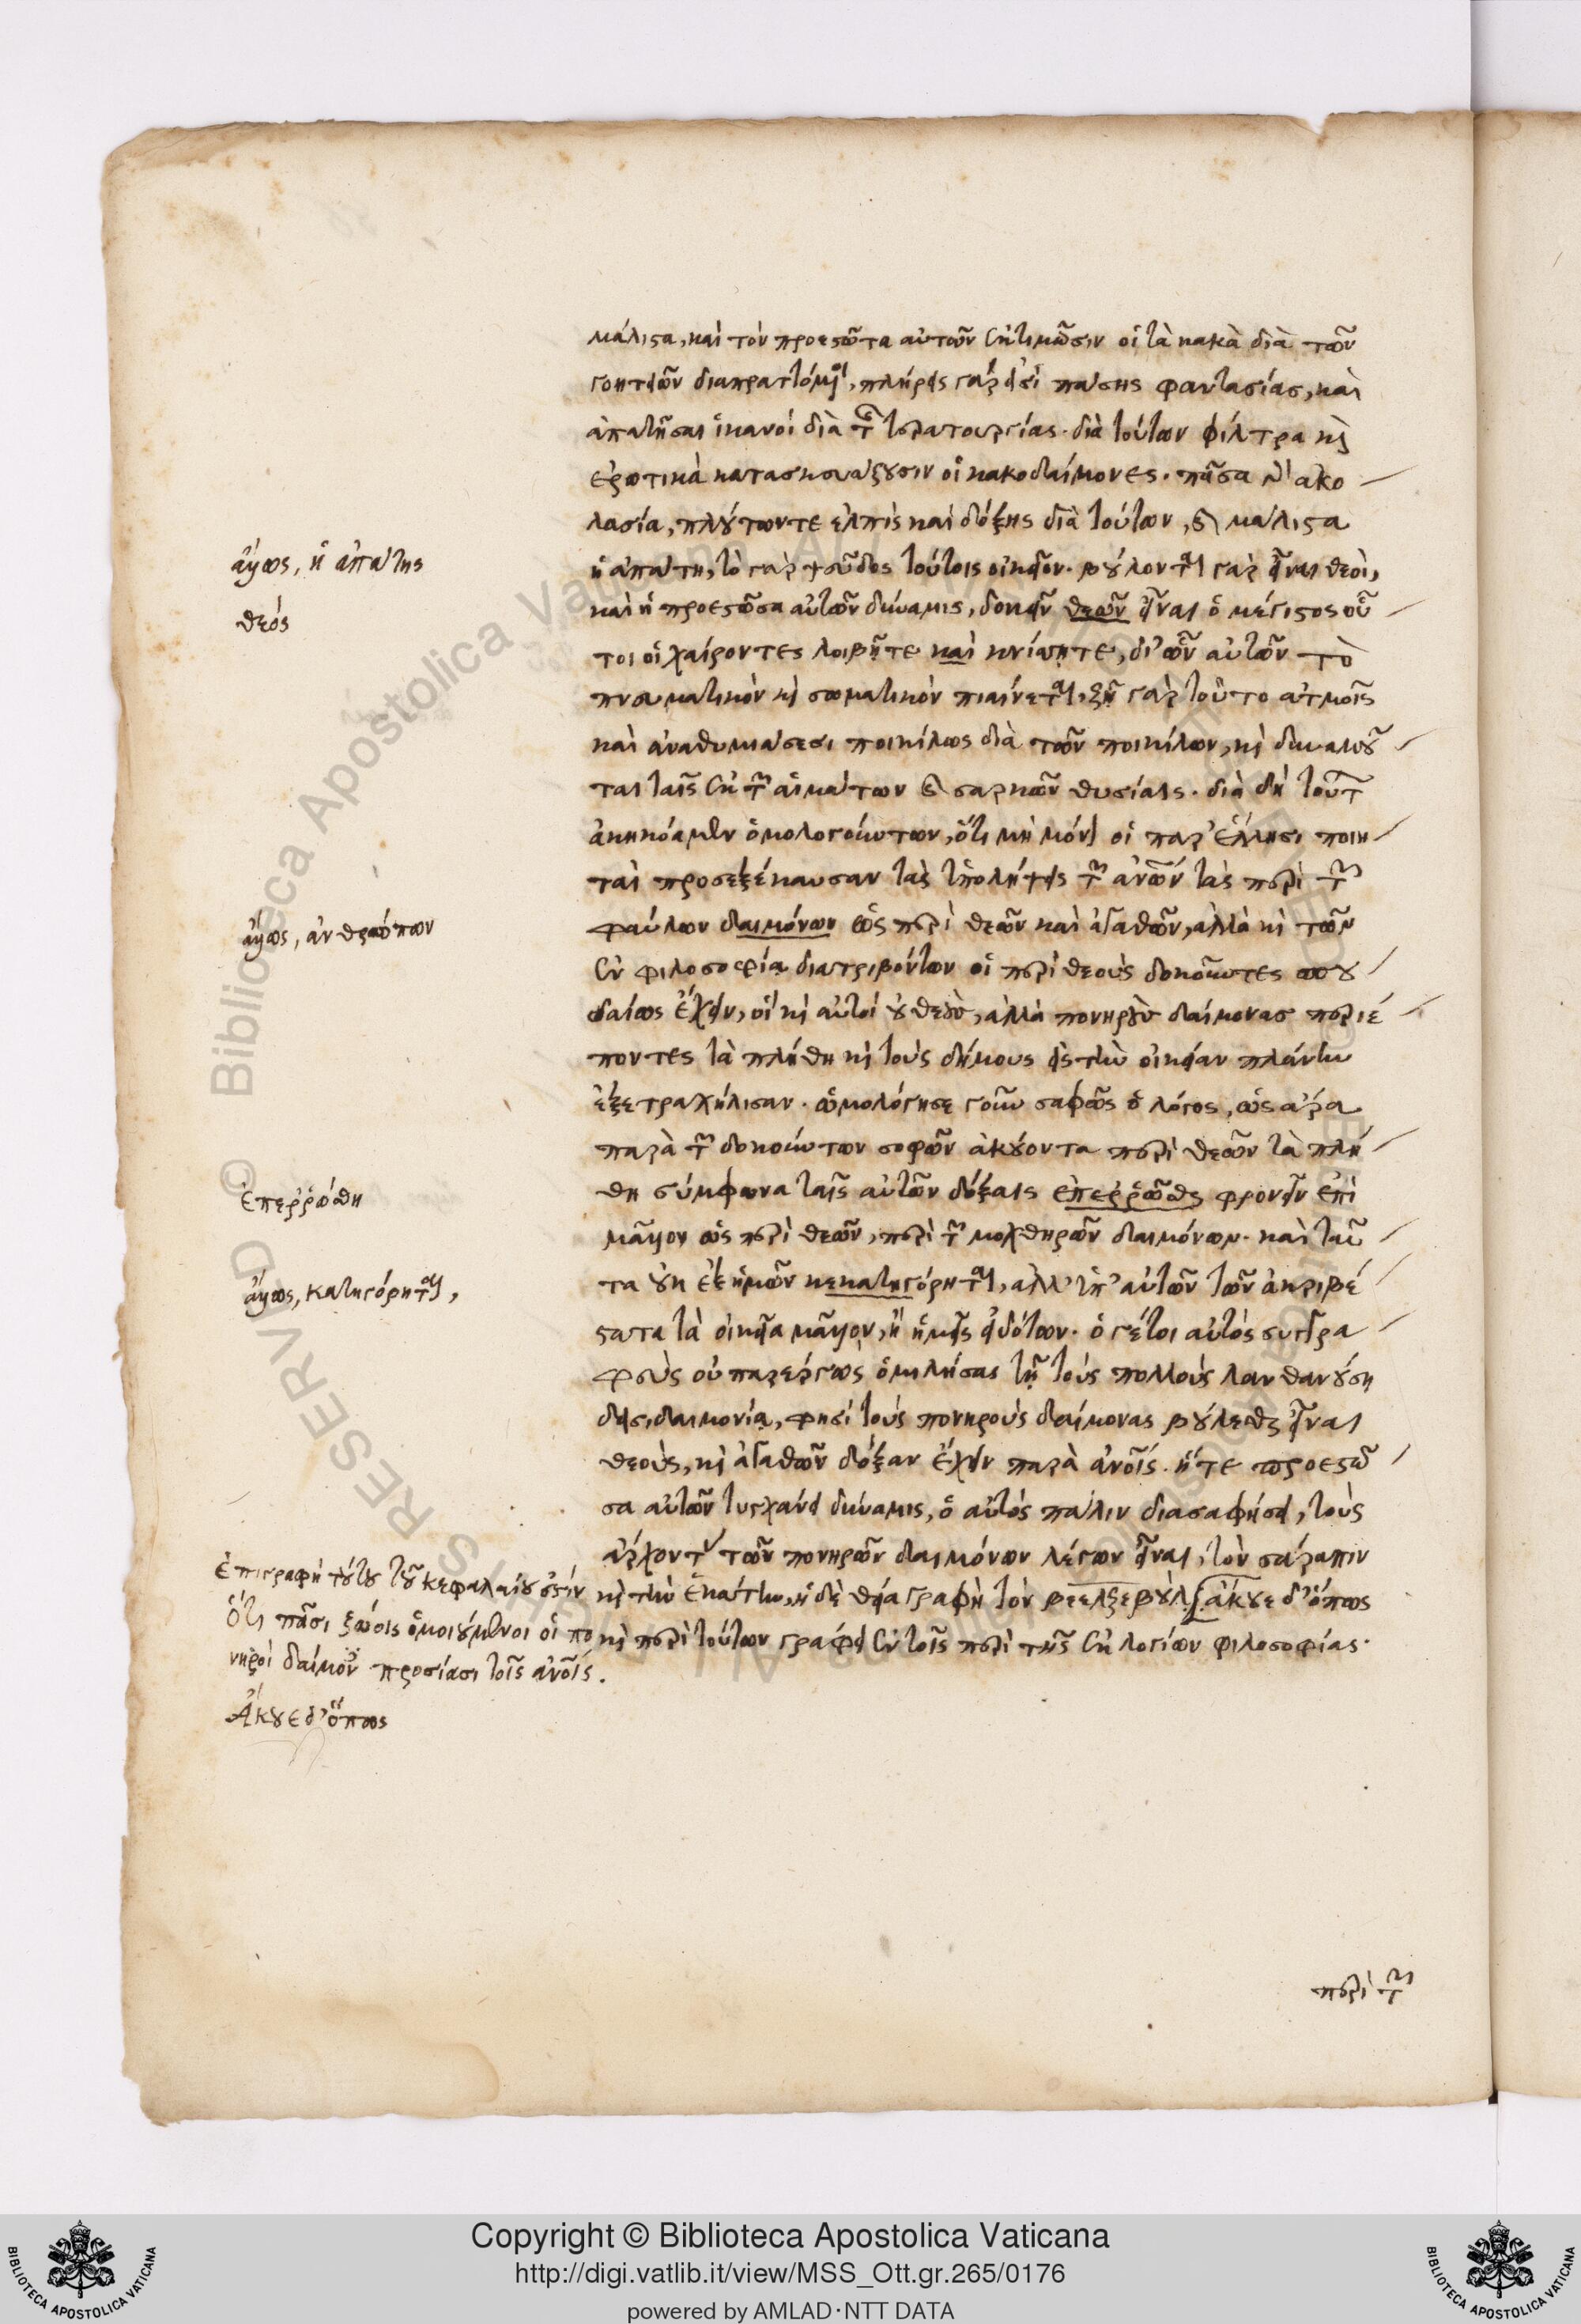 μάλιστα, καὶ τὸν προεστῶτα αὐτῶν ἐκτιμῶσιν οἱ τὰ κακὰ διὰ τῶν
γοητειῶν διαπραττόμενοι, πλήρεις γάρ εἰσι πάσης φαντασίας, καὶ
ἀπατῆσαι ἱκανοὶ διὰ τῆς τερατουργίας. διὰ τούτων φίλτρα καὶ
ἐρωτικὰ κατασκευάζουσιν οἱ κακοδαίμονες. πᾶσα γὰρ ἀκο
λασία, πλούτων τε ἐλπὶς καὶ δόξης διὰ τούτων, καὶ μάλιστα
ἡ ἀπάτη, τὸ γὰρ ψεῦδος τούτοις οἰκεῖον. βούλονται γὰρ εἶναι θεοὶ,
καὶ ἡ προεστῶσα αὐτῶν δύναμις, δοκεῖν θεῶν εἶναι ὁ μέγιστος οὗ
τοι οἱ χαίροντες λοιβῇ τε καὶ κνίσῃ τε, δι' ὧν αὐτῶν τὸ
πνευματικὸν καὶ σωματικὸν πιαίνεται, ζῇ γὰρ τοῦτο ἀτμοῖς
καὶ ἀναθυμιάσεσι ποικίλως διὰ τῶν ποικίλων, καὶ δυναμοῦ
ται ταῖς ἐκ τῶν αἱμάτων καὶ σαρκῶν θυσίαις. διὰ δὴ τούτων
ἀκηκόαμεν ὁμολογούντων, ὅτι μὴ μόνον οἱ παρ' ἕλλησι ποιη
ταὶ προσεξέκαυσαν τὰς ὑπολήψεις τῶν ἀνων τὰς περὶ τῶν
φαύλων δαιμόνων ὡς περὶ θεῶν καὶ ἀγαθῶν, ἀλλὰ καὶ τῶν
ἐν φιλοσοφίᾳ διατριβόντων οἱ περὶ θεοὺς δοκοῦντες σπου
δαίως ἔχειν, οἳ καὶ αὐτοὶ οὐ θεοὺς, ἀλλὰ πονηροὺς δαίμονας περιέ
ποντες τὰ πλήθη καὶ τοὺς δήμους εἰς τὴν οἰκείαν πλάνην
ἐξετραχήλισαν. ὡμολόγησε γοῦν σαφῶς ὁ λόγος, ὡς ἄρα
παρὰ τῶν δοκούντων σοφῶν ἀκούοντα περὶ θεῶν τὰ πλή
θη σύμφωνα ταῖς αὐτῶν δόξαις ἐπερρῶσθαι φρονεῖν ἐπὶ
μᾶλλον ὡς περὶ θεῶν, περὶ τῶν μοχθηρῶν δαιμόνων. καὶ ταῦ
τα οὐκ ἐξ ἡμῶν κεκατηγόρηται, ἀλλ' ὑπ' αὐτῶν τῶν ἀκριβέ
στατα τὰ οἰκεῖα μᾶλλον, ἢ ἡμεῖς εἰδότων. ὁ γέτοι αὐτὸς συγγρα
φεὺς οὐ παρέργως ὁμιλήσας τῇ τοὺς πολλοὺς λανθανούσῃ
δεισιδαιμονίᾳ, φησὶ τοὺς πονηροὺς δαίμονας βούλεσθαι εἶναι
θεοὺς, καὶ ἀγαθῶν δόξαν ἔχειν παρὰ ἀνοις. ἥ τε προεστῶ
σα αὐτῶν τυγχάνει δύναμις, ὁ αὐτὸς πάλιν διασαφήσει, τοὺς
ἄρχοντας τῶν πονηρῶν δαιμόνων λέγων εἶναι, τὸν σάραπιν
καὶ τὴν ἑκάτην, ἡ δὲ θεία γραφὴ τὸν βεελζεβοὺλ. ἄκουε δ' ὅπως
καὶ περὶ τούτων γράφει ἐν τοῖς περὶ τῆς ἐκ λογίων φιλοσοφίας.
ἄλλως, ἡ ἀπάτης
θεός
ἄλλως, ἀνθρώπων
ἐπερρώσθη
ἄλλως, κατηγόρηται,
Ἐπιγραφὴ τούτου τοῦ κεφαλαίου ἐστίν
Ὅτι πᾶσι ζώοις ὁμοιούμενοι οἱ πο
νηροὶ δαίμονες προσίασι τοῖς ἀνοις.
Ἄκουε δ' ὅπως
περὶ τῶν
Copyright © Biblioteca Apostolica Vaticana
http://digi.vatlib.it/view/MSS_Ott.gr.265/0176
powered by AMLAD·NTT DATA
BIBLIOTECA APOSTOLICA VATICANA
BIBLIOTECA APOSTOLICA VATICANA